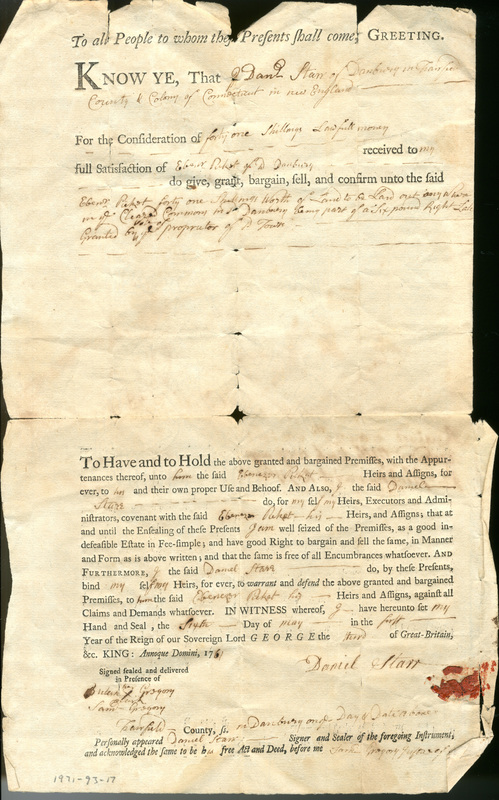 To all People to whom these Presents shall come, GREETING.
KNOW YE, That I Danll Starr of Danbury in Fairfield
County & Colony of Connecticut in new England
For the Consideration of forty one Shillings Lawfull money
received to my
full Satisfaction of Ebenr Picket of sd Danbury
do give, grant, bargain, sell, and confirm unto the said
Ebenr Picket forty one Shillings Worth of Land to be Laid out any where
in ye Common in sd Danbury being part of a Six pound Right Late
Granted by ye proprietor of sd Town
To Have and to Hold the above granted and bargained Premisses, with the Appur-
tenances thereof, unto him the said Ebenezer Picket Heirs and Assigns, for
ever, to his and their own proper Use and Behoof. AND ALSO, I the said Daniel
Starr do, for my self my Heirs, Executors and Admi-
nistrators, covenant with the said Ebenezer Picket his Heirs, and Assigns; that at
and until the Ensealing of these Presents I am well seized of the Premisses, as a good in-
defeasible Estate in Fee-simple; and have good Right to bargain and sell the same, in Manner
and Form as is above written; and that the same is free of all Encumbrances whatsoever. AND
FURTHERMORE, I the said Daniel Starr do, by these Presents,
bind my self my Heirs, for ever, to warrant and defend the above granted and bargained
Premisses, to him the said Ebenezer Picket his Heirs and Assigns, against all
Claims and Demands whatsoever. IN WITNESS whereof, I have hereunto set my
Hand and Seal, the Sixth Day of may in the first
Year of the Reign of our Sovereign Lord GEORGE the third of Great-Britain,
&c. KING: Annoque Domini, 1761
Daniel Starr
Signed sealed and delivered
in Presence of
Gregory
Saml Gregory
Fairfield County, ss. in Danbury one ye Day & Date above
Personally appeared Daniel Starr Signer and Sealer of the foregoing Instrument,
and acknowledged the same to be his free Act and Deed, before me
1971-93-17